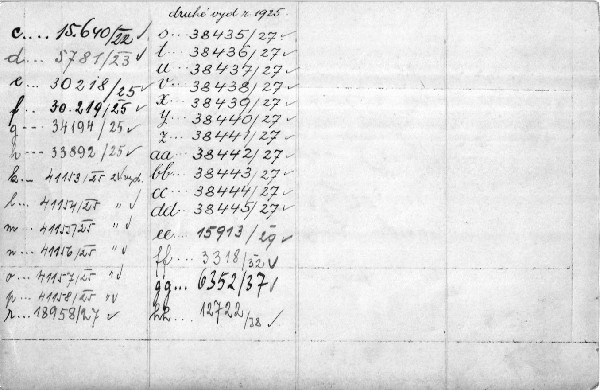 druhé vyd z r. 1925.
c.... 15.640/22 ✓
d.... 5781/23 ✓
e... 30218/25 ✓
f.. 30.219/25 ✓
g--- 34194/25 ✓
h---- 33892/25 ✓
k... 41153/25
l... 41154/25 " ✓
m.... 41155/25 " ✓
n... 41156/25 " ✓
o... 41157/25 " ✓
p... 41158/25 " ✓
r... 18958/27 ✓
o... 38435/27 ✓
t... 38436/27 ✓
u... 38437/27 ✓
v... 38438/27 ✓
x... 38439/27 ✓
y... 38440/27 ✓
z... 38441/27 ✓
aa... 38442/27 ✓
bb... 38443/27 ✓
cc... 38444/27 ✓
dd... 38445/27 ✓
ee.... 15913/29 ✓
ff... 3318/32 ✓
gg... 6352/37 ✓
hh.... 12722/38 ✓